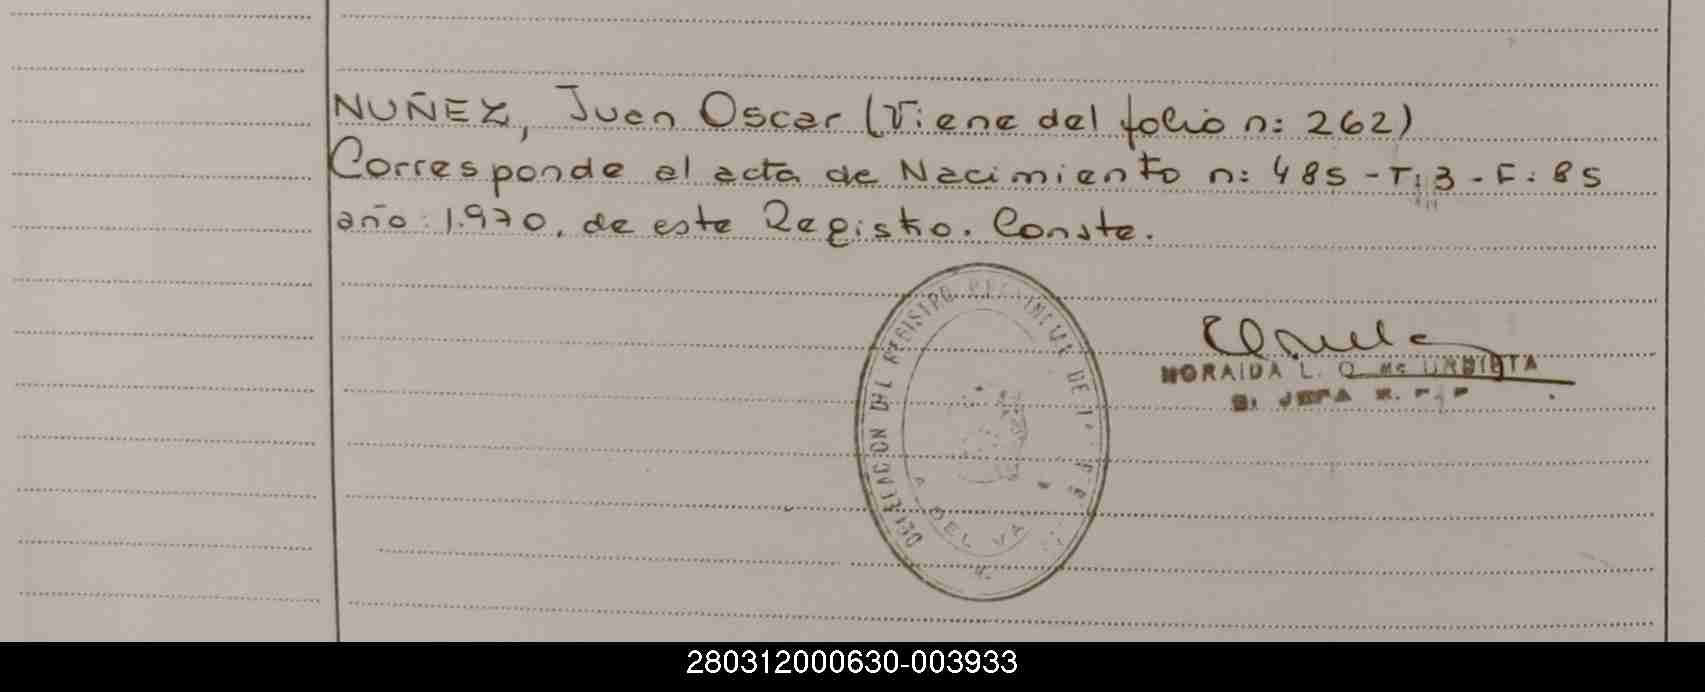 NUÑEZ, Juan Oscar (Viene del folio n: 262)
Corresponde al acta de Nacimiento n: 485 - T: 3 - F: 85
año: 1.970, de este Registro. Conste.
DELEGACION DEL REGISTRO PROVINCIAL DE
DEL VA
NORAIDA L. O. de URBIETA
JEFA R. P. P
280312000630-003933